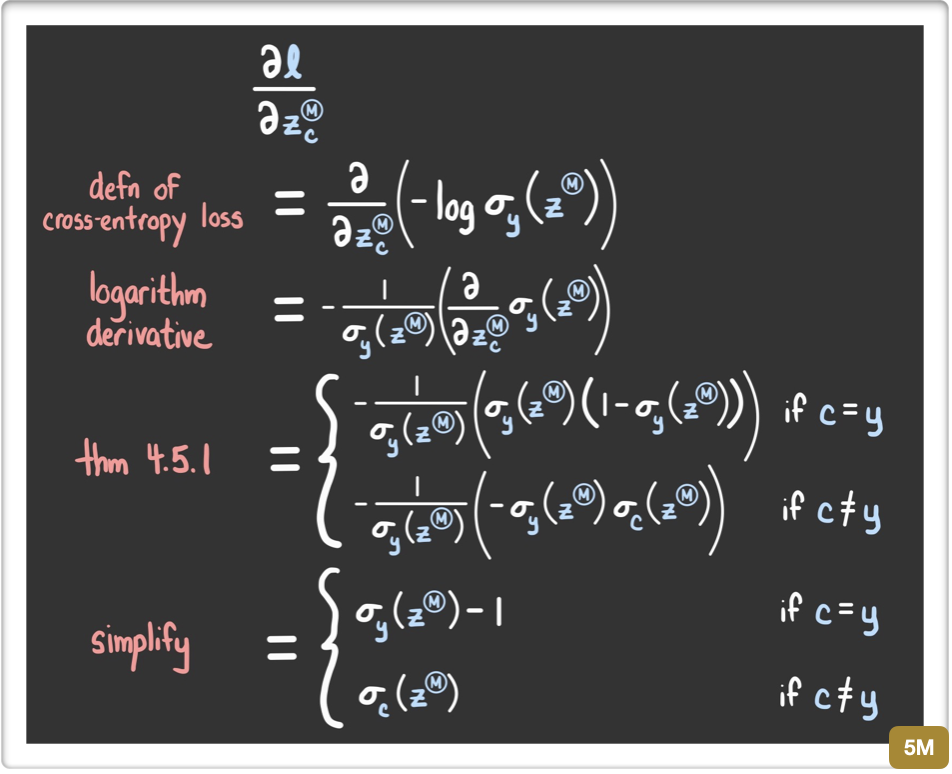 ∂ℓ / ∂z_c^Ⓜ
defn of cross-entropy loss = ∂/∂z_c^Ⓜ (-log σ_y(z^Ⓜ))
logarithm derivative = -1/σ_y(z^Ⓜ) (∂/∂z_c^Ⓜ σ_y(z^Ⓜ))
thm 4.5.1 = { -1/σ_y(z^Ⓜ) (σ_y(z^Ⓜ)(1-σ_y(z^Ⓜ))) if c=y
-1/σ_y(z^Ⓜ) (-σ_y(z^Ⓜ) σ_c(z^Ⓜ)) if c≠y
simplify = { σ_y(z^Ⓜ)-1 if c=y
σ_c(z^Ⓜ) if c≠y
5M